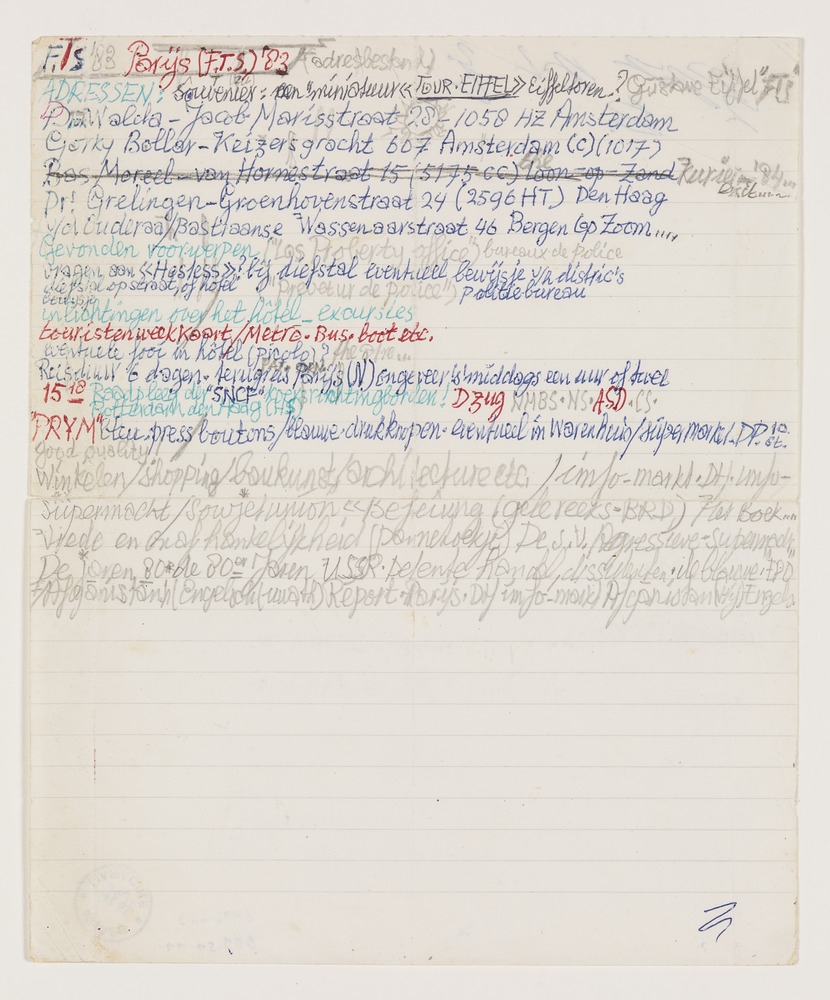 F.T.S '83 Parijs (F.T.S.) '83 (adresbestand)
ADRESSEN: souvenier: een "miniatuur «TOUR·EIFFEL» Eiffeltoren? Gustave Eiffel" FTS
Walda - Jacob Marisstraat 28 - 1058 HZ Amsterdam
Gorky Bollar - Keizersgracht 607 Amsterdam (C) (1017)
Bas Moreel - van Hornestraat 15 (5175 CC) Loon op Zand '84...
Dr! Grelingen - Groenhovenstraat 24 (2596 HT) Den Haag
v/d Ouderaa/Bastiaanse Wassenaarstraat 46 Bergen op Zoom....
Gevonden voorwerpen ("Los Property office") bureaux de police
vragen aan «Hostess»? bij diefstal eventueel bewijsje v/n distric's
diefstal op straat, of hôtel "Prevetur de police") politiebureau
inlichtingen over het hôtel_excursies
touristenweekkaart/Metro·Bus·boot etc.
eventuele fooi in hôtel (picolo)?
Reisduur 6 dagen·terugreis Parijs (N) ongeveer 's middags een uur of twee
15 18 Raadpleeg der "SNCF" koersrichtingborden! D zug NMBS·NS·ASD·CS·
Rotterdam, den Haag (HS)
"PRYM" bleu press boutons/blauwe drukknopen·eventueel in Warenhuis/supermarkt
good quality
Winkelen/shopping/boukunst/architecture etc. /info-markt·DH·info-
supermacht/Sowjetunion (gele reeks-BRD) Het Boek...
Vrede en onafhankelijkheid De S.U. Agressieve-supermacht
De Jaren 80·de 80er Jaren, USSR·Defense
Afganistan (Engelsch Report·Parijs·DH info-markt Afganistan Engels